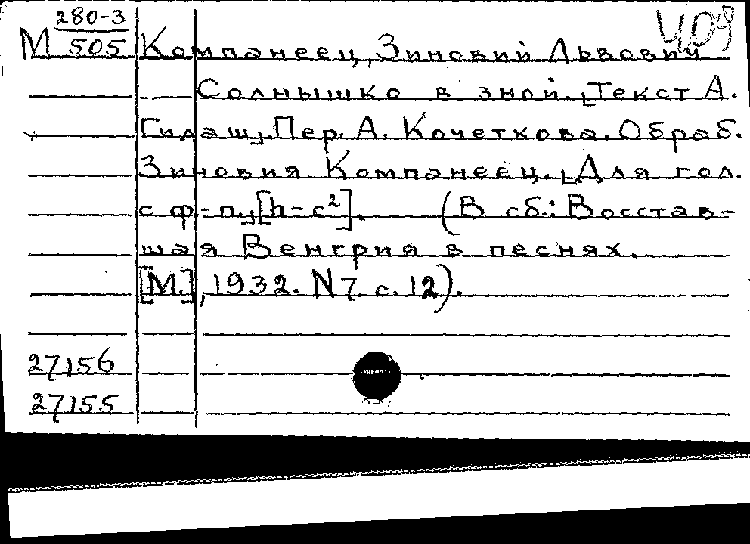 280-3
М 505 Компанеец, Зиновий Львович
409
Солнышко в зной. [Текст А.
Гидаш], Пер. А. Кочеткова. Обраб.
Зиновия Компанеец. [Для гол.
с ф-п.], [h-c²]. (В сб.: Восстав-
шая Венгрия в песнях.
[М.], 1932. N7. с. 12).
27156
27155